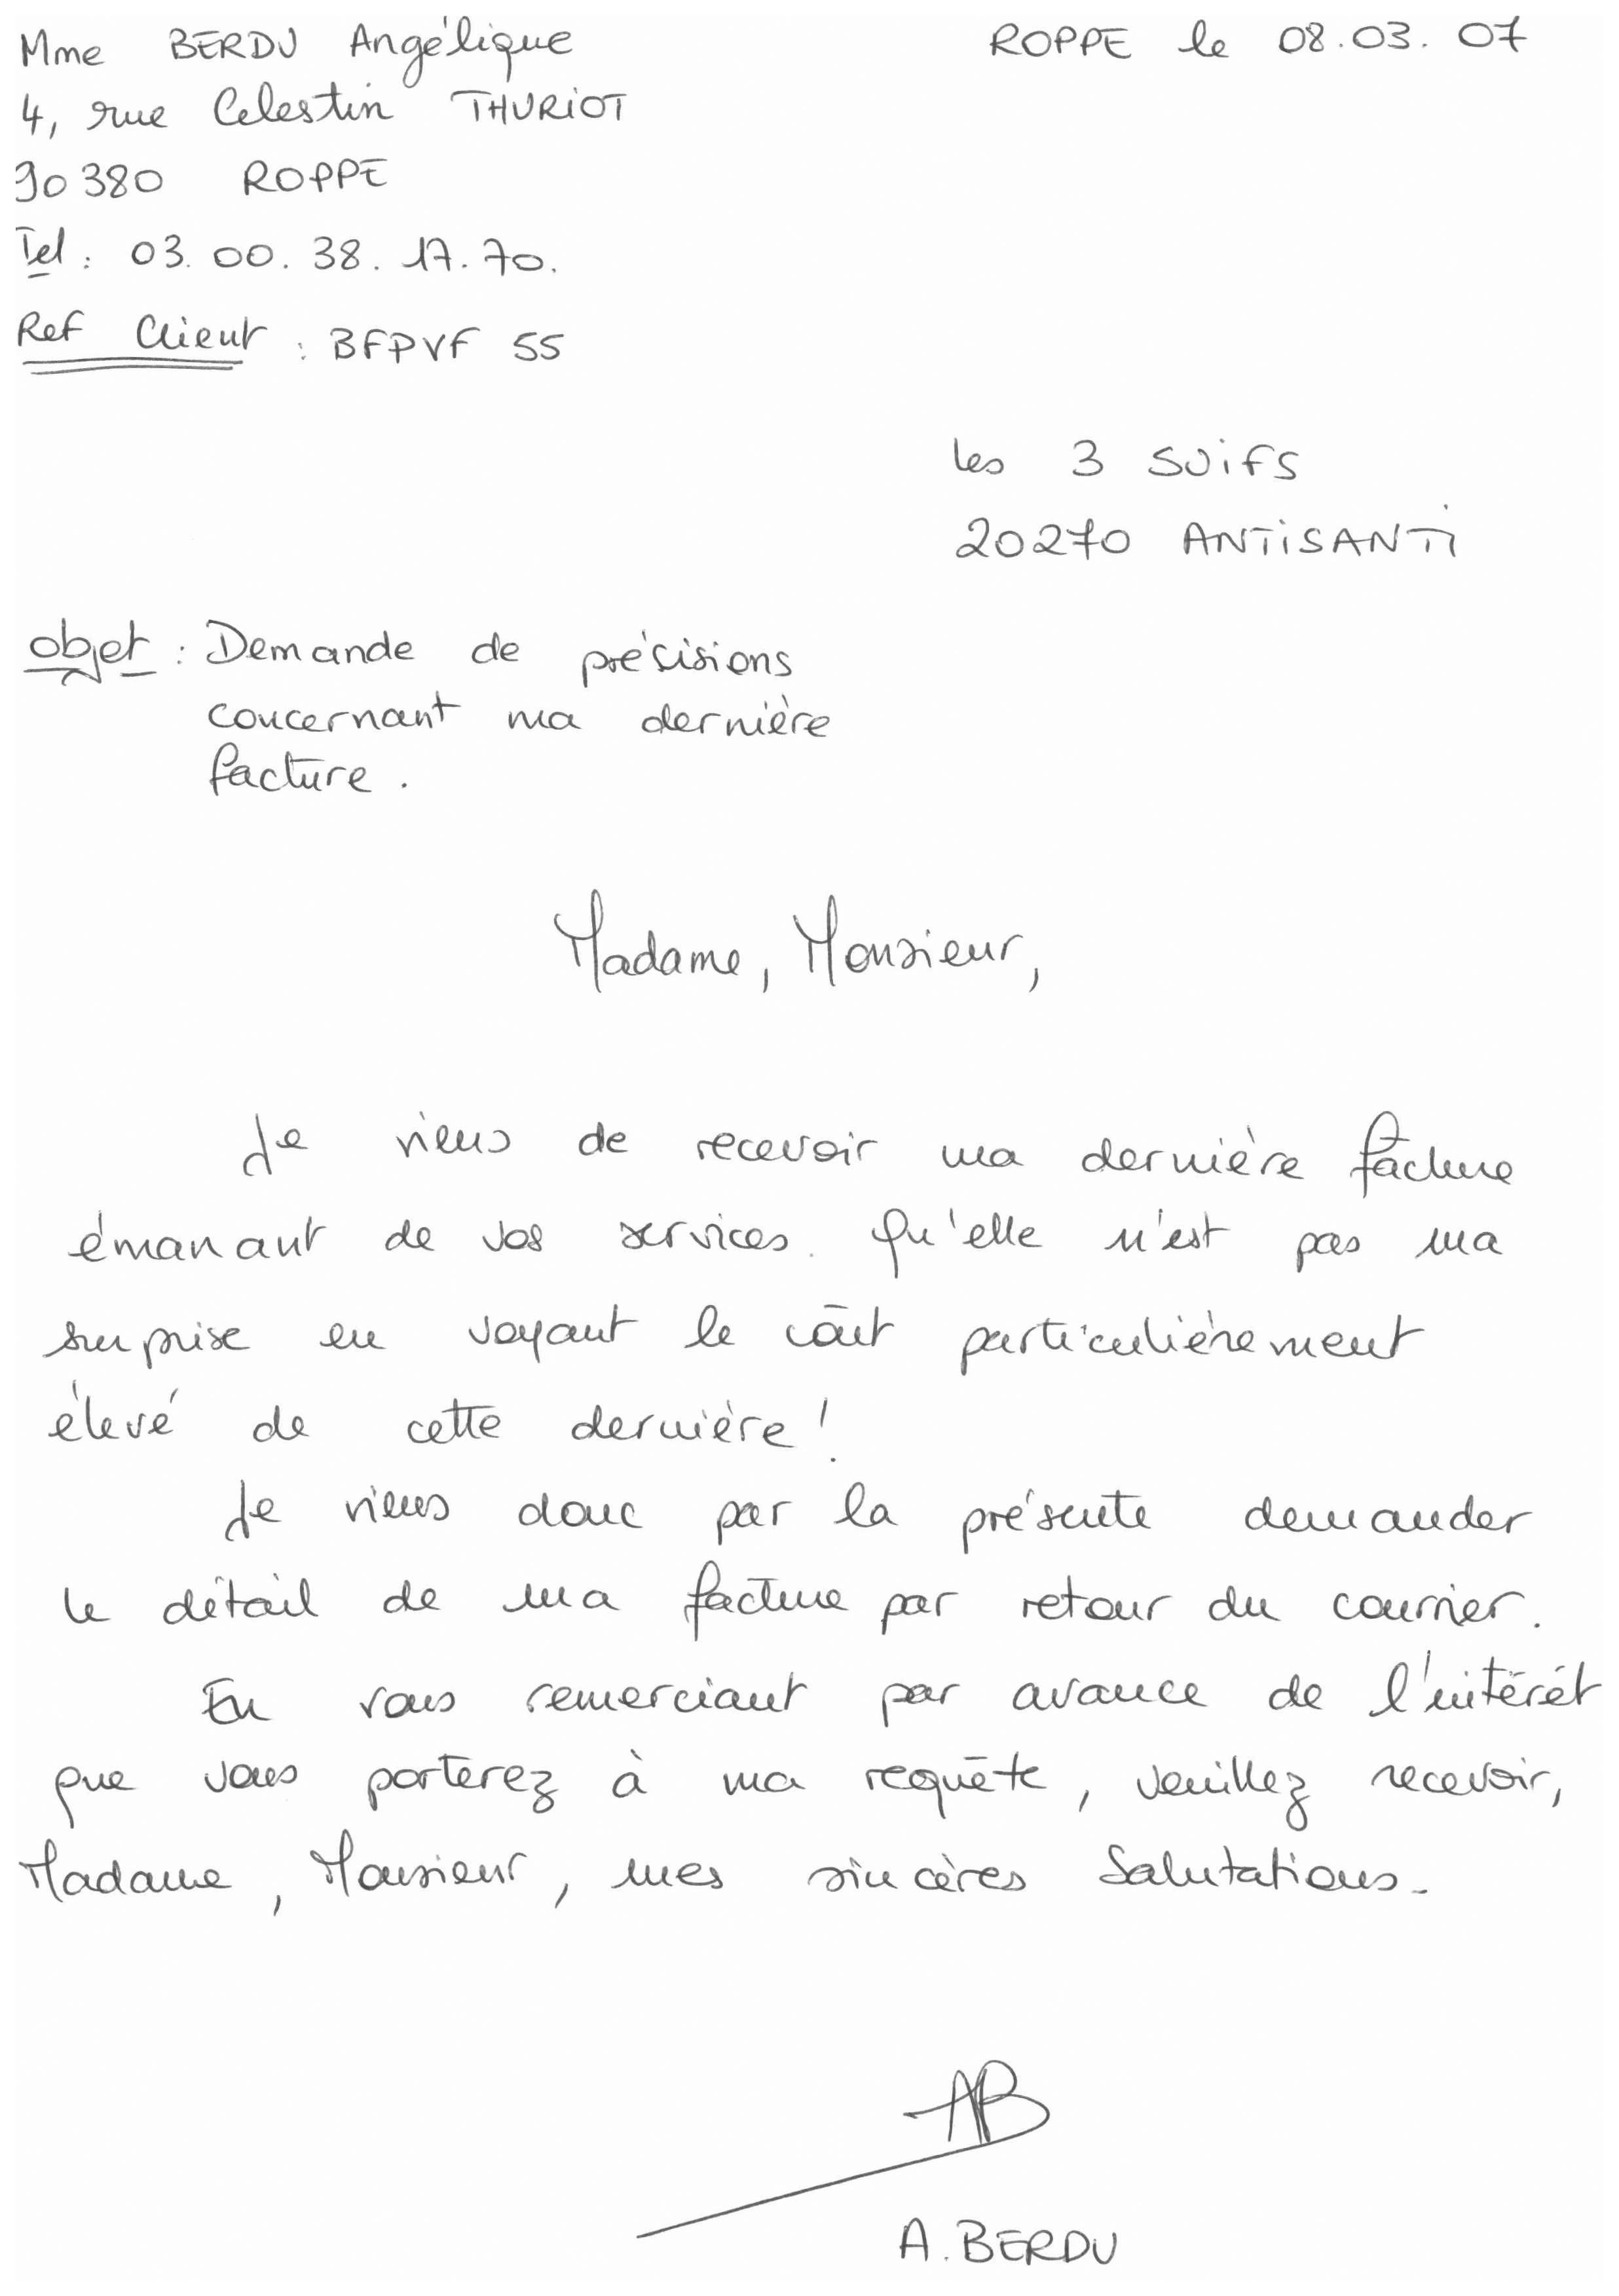 Mme BERDU Angélique
ROPPE le 08.03.07
4, rue Celestin THURIOT
90380 ROPPE
Tel : 03.00.38.17.70.
Ref Client : BFPVF 55
les 3 SUifS
20270 ANTiSANTi
objet : Demande de précisions
concernant ma dernière
facture.
Madame, Monsieur,
Je viens de recevoir ma dernière facture
émanant de vos services. Qu'elle n'est pas ma
surprise en voyant le coût particulièrement
élevé de cette dernière !
Je viens donc par la présente demander
le détail de ma facture par retour du courrier.
En vous remerciant par avance de l'intérêt
que vous porterez à ma requête, veuillez recevoir,
Madame, Monsieur, mes sincères Salutations.
AB
A. BERDU